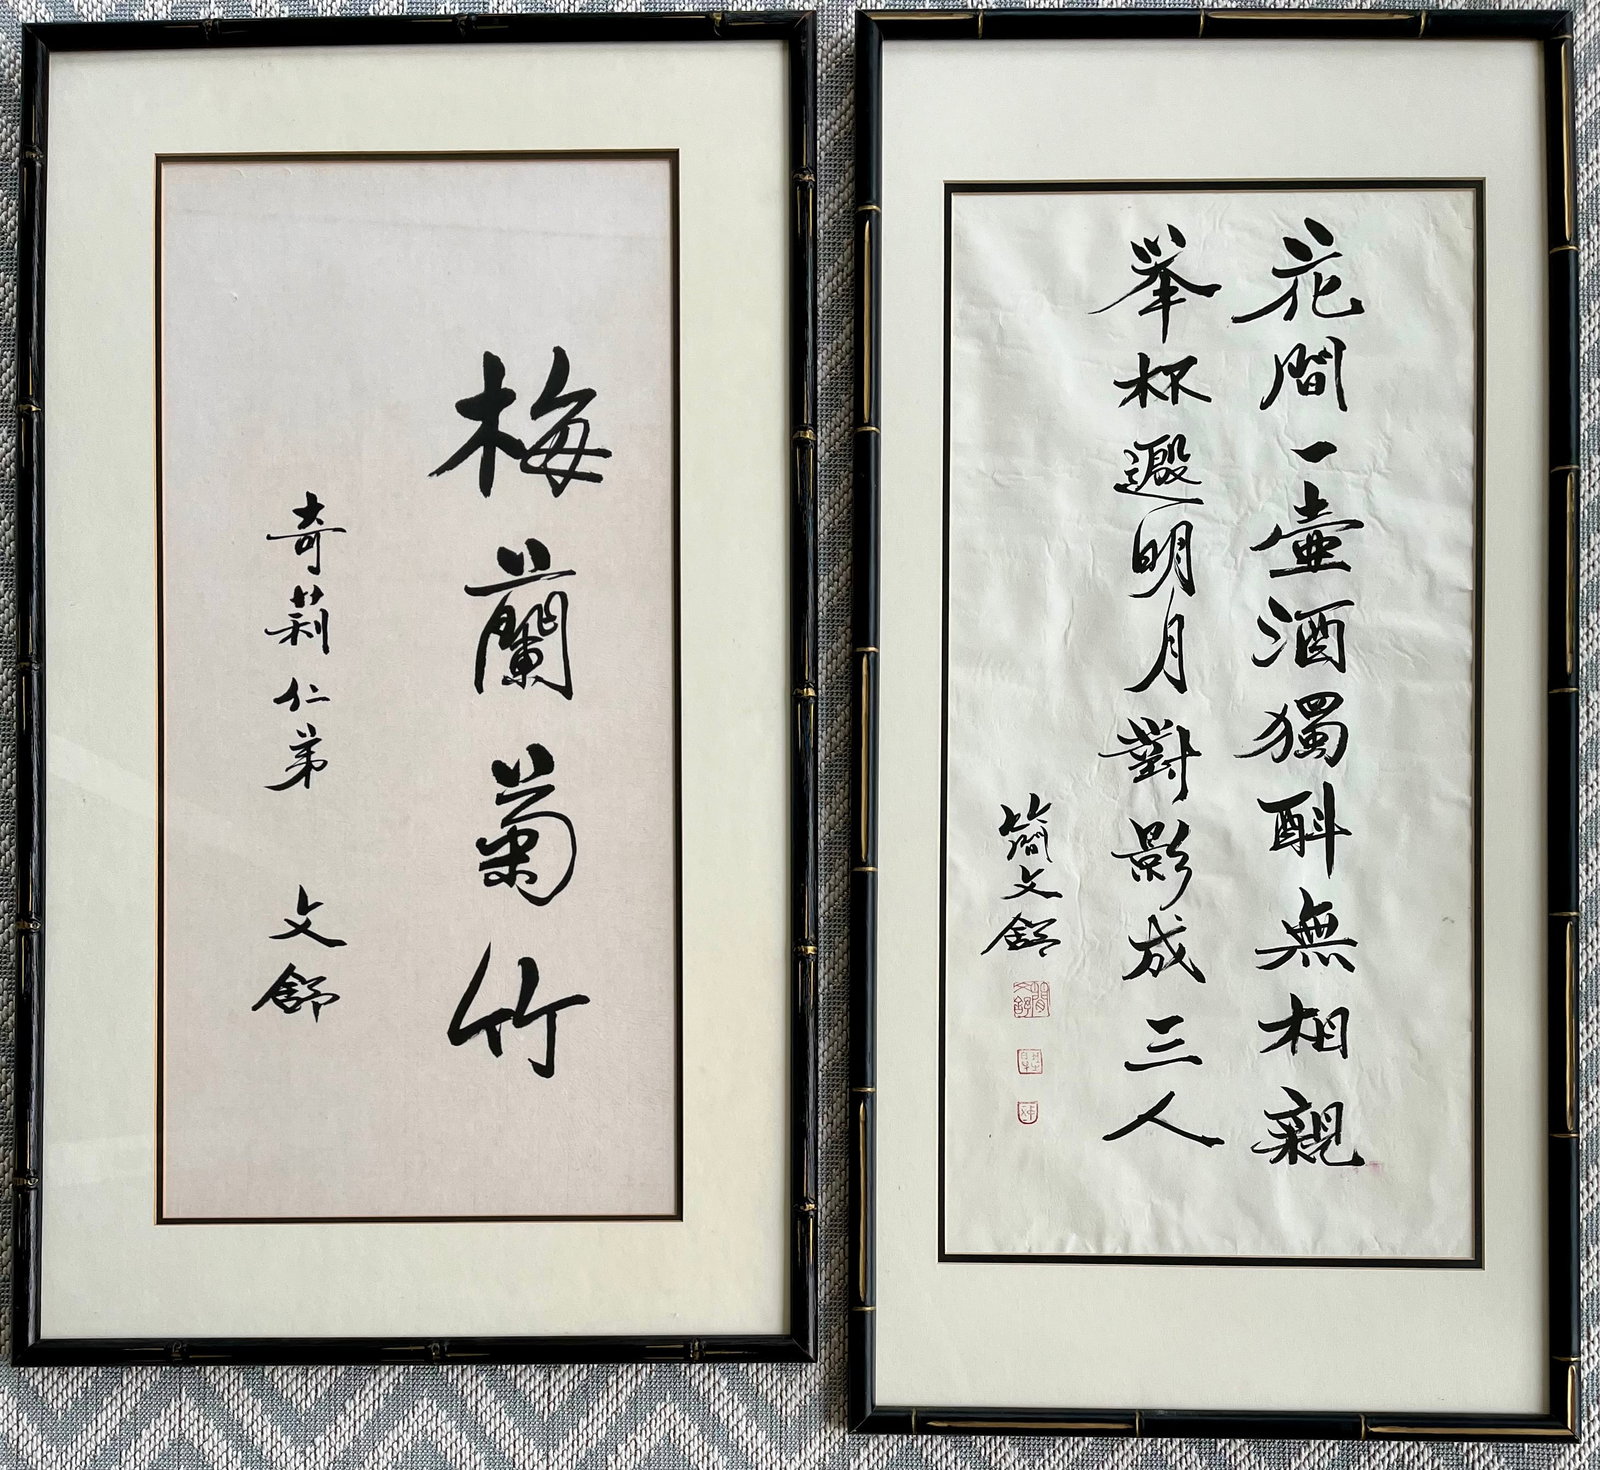 梅蘭菊竹
奇莉仁弟 文舒
花間一壺酒獨酙無相親
舉杯邀明月對影成三人
簡文舒
簡文舒